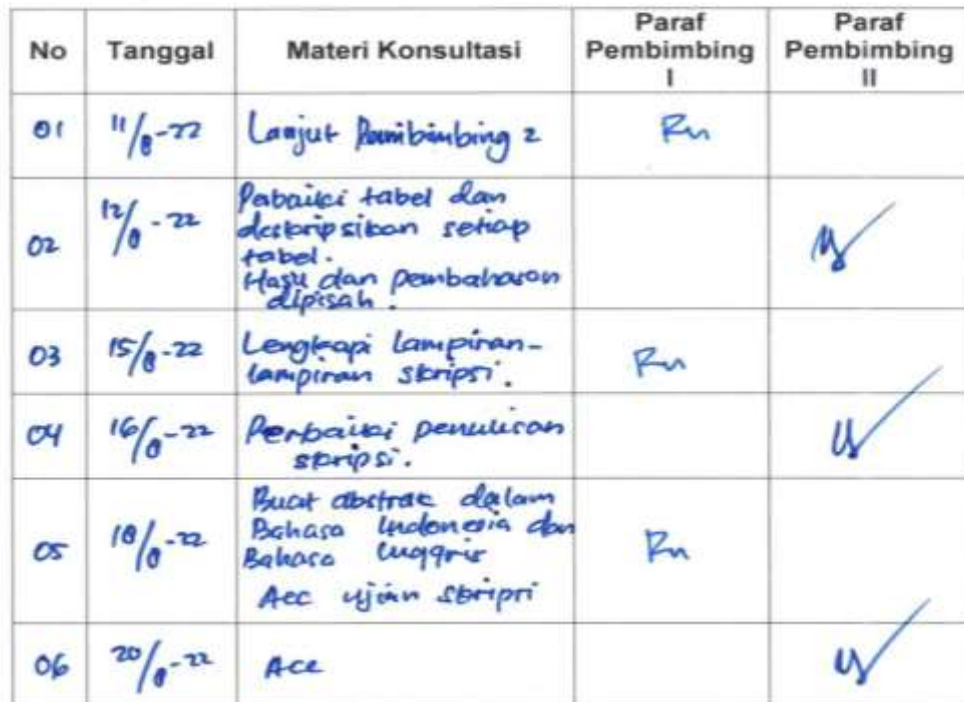 No Tanggal Materi Konsultasi Paraf Pembimbing I Paraf Pembimbing II
01 11/8-22 Lanjut Pembimbing 2
02 12/8-22 Pebaiki tabel dan
deskripsikan setiap
tabel.
Hasil dan pembahasan
dipisah.
03 15/8-22 Lengkapi lampiran-
lampiran skripsi.
04 16/8-22 Perbaiki penulisan
skripsi.
05 18/8-22 Buat abstrak dalam
Bahasa Indonesia dan
Bahasa Inggris
Acc ujian skripsi
06 20/8-22 Acc